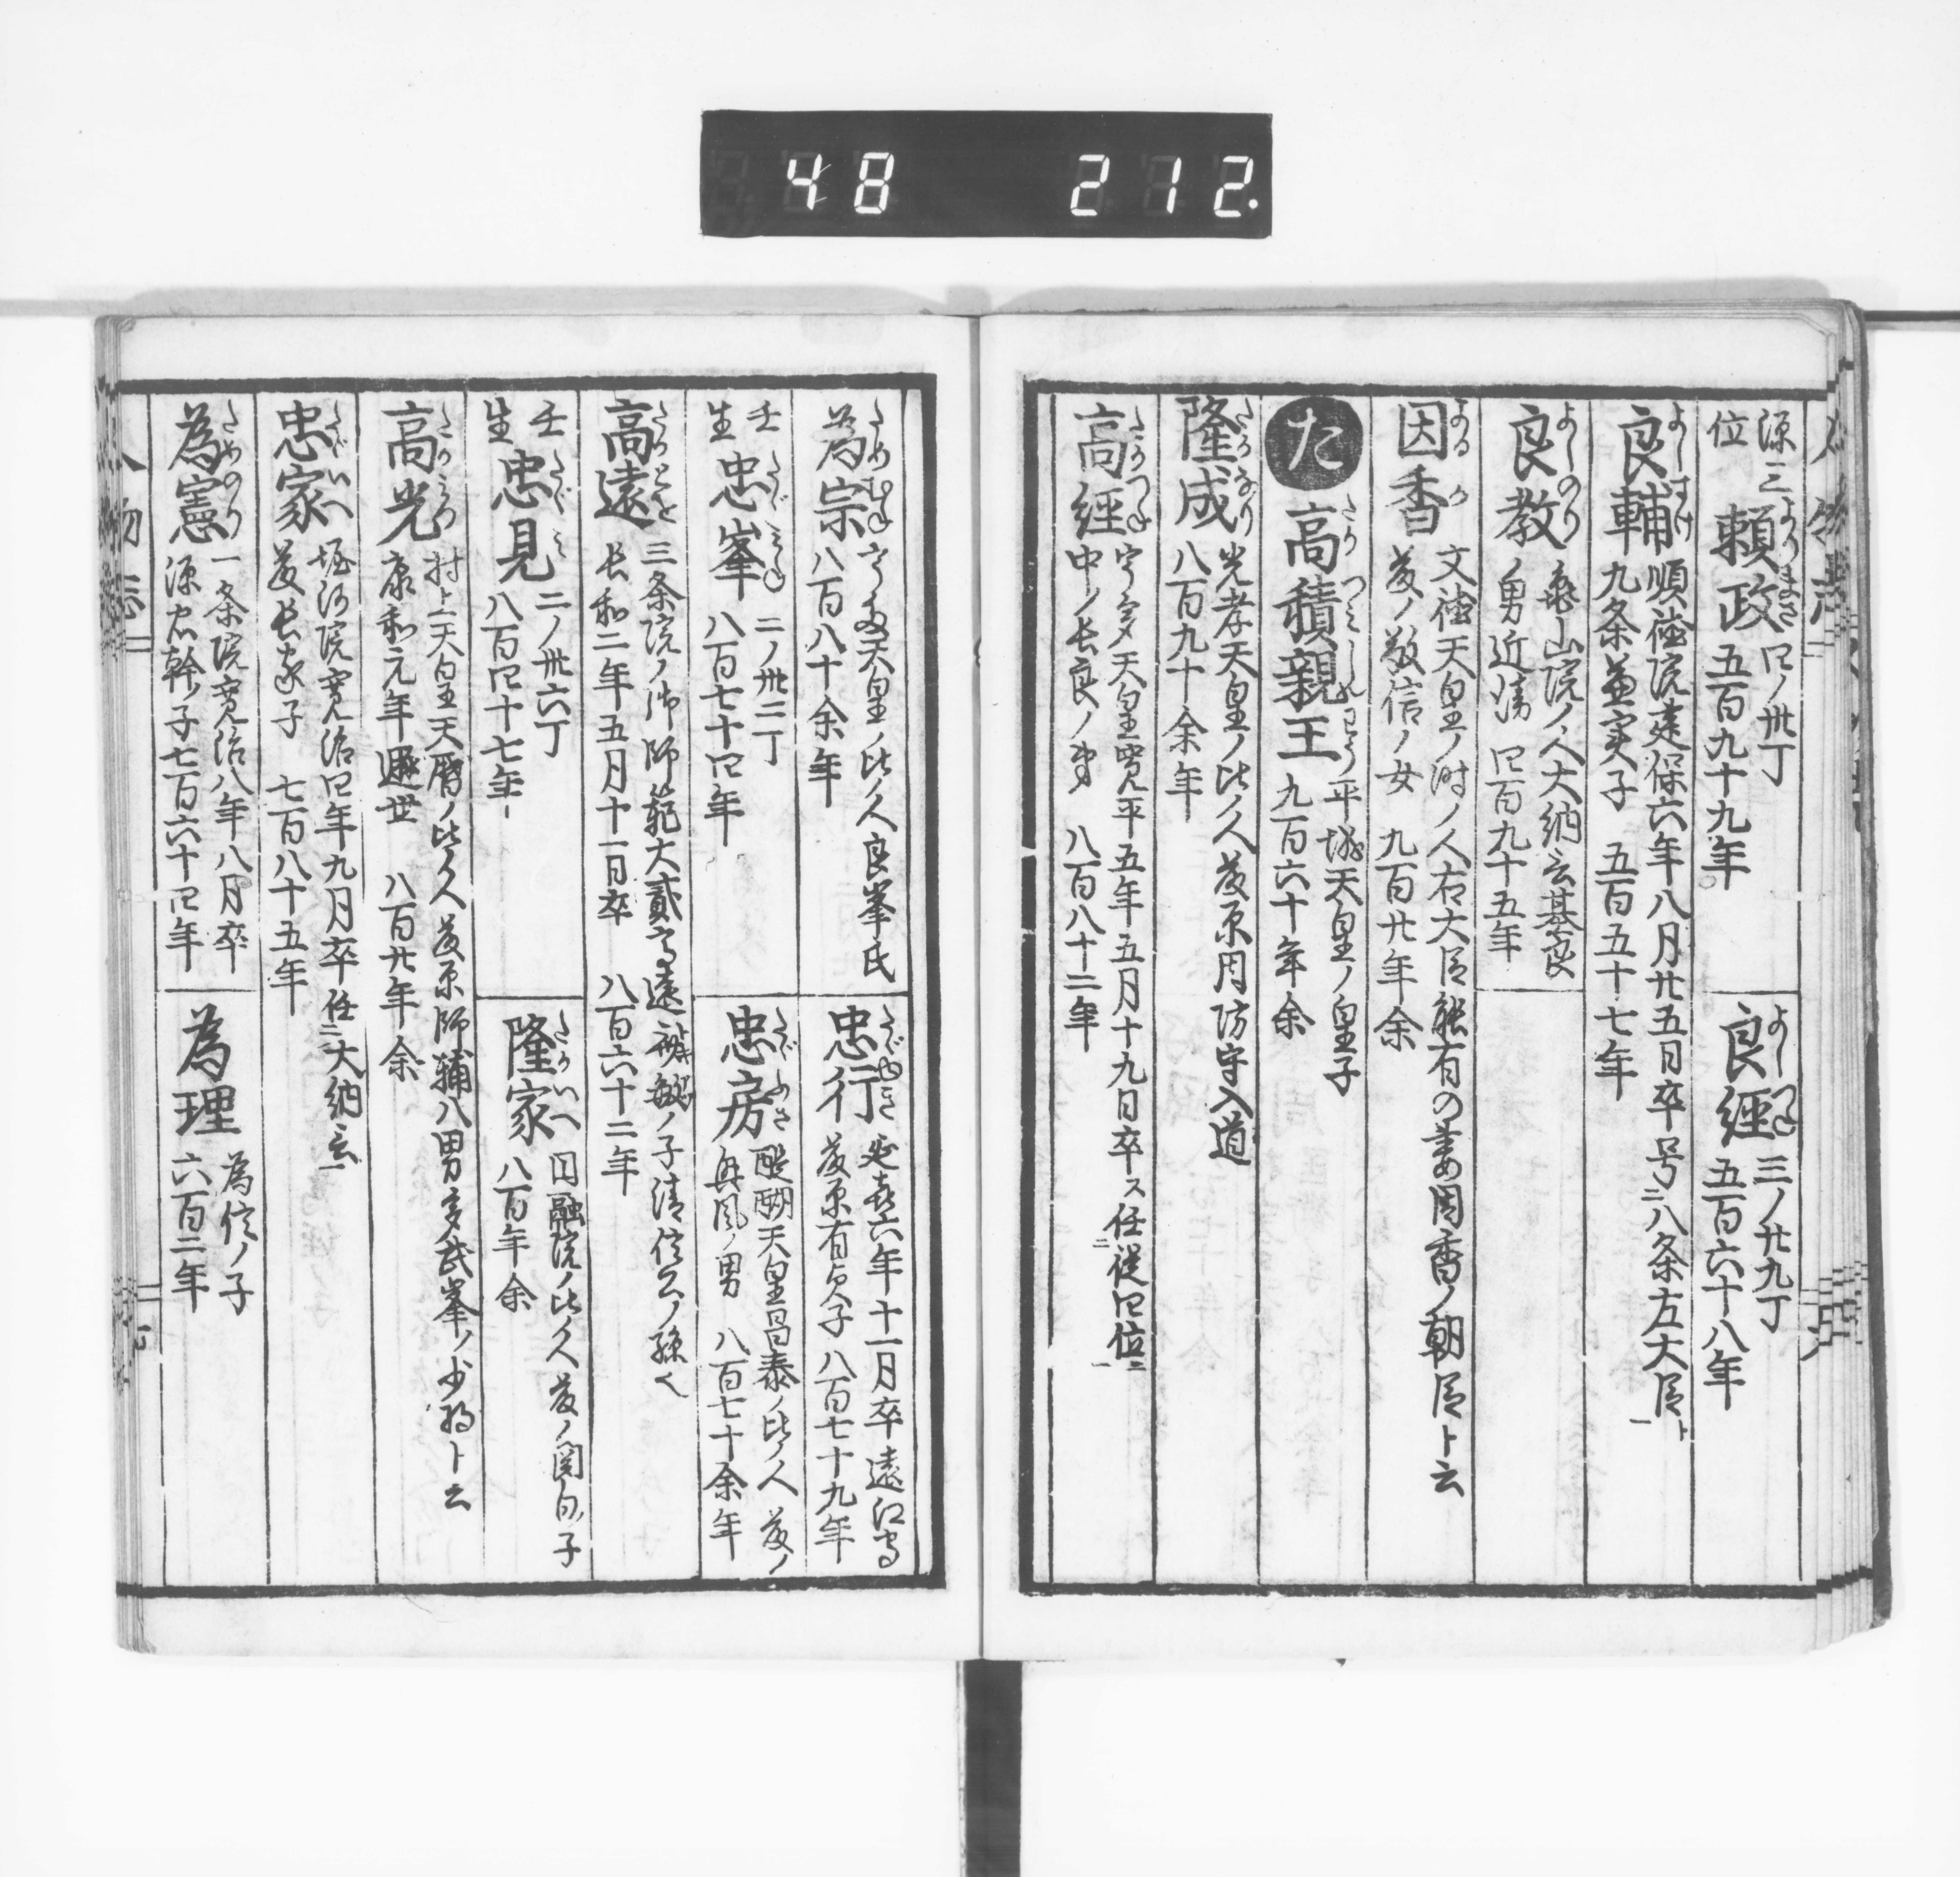 48 212.
源三位 頼政 四ノ卅丁
五百九十九年
良經 三ノ廿九丁
五百六十八年
良輔 順徳院建保六年八月廿五日卒号二八条左大臣ト一
九条兼実子 五百五十七年
良教 亀山院ノ人大納言基良
ノ男近清 四百九十五年
因香 文徳天皇ノ时ノ人右大臣能有の妻因香ノ朝臣ト云
藤ノ敬信ノ女 九百廿年余
た
高積親王 平城天皇ノ皇子
九百六十年余
隆成 光孝天皇ノ比ノ人藤原周防守入道
八百九十余年
高經 宇多天皇寛平五年五月十九日卒ス任二従四位二一
中ノ長良ノ弟 八百八十二年
為宗 宇多天皇ノ比ノ人良峯氏
八百八十余年
忠行 延喜六年十一月卒遠江守
藤原有貞子 八百七十九年
壬生 忠峯 二ノ卅二丁
八百七十四年
忠房 醍醐天皇昌泰ノ比ノ人 藤ノ
興風ノ男 八百七十余年
高遠 三条院ノ御師範大貳高遠 斎敏ノ子清信公ノ孫也
長和二年五月十一日卒 八百六十二年
壬生 忠見 二ノ卅六丁
八百四十七年
隆家 円融院ノ比ノ人 藤ノ関白ノ子
八百年余
高光 村上天皇天暦ノ比ノ人 藤原師輔八男多武峯ノ少将ト云
康和元年遁世 八百廿年余
忠家 堀河院寛治四年九月卒任二大納言一
藤長家子 七百八十五年
為憲 一条院寛治八年八月卒
源忠幹ノ子七百六十四年
為理 為信ノ子
六百二年
人物志